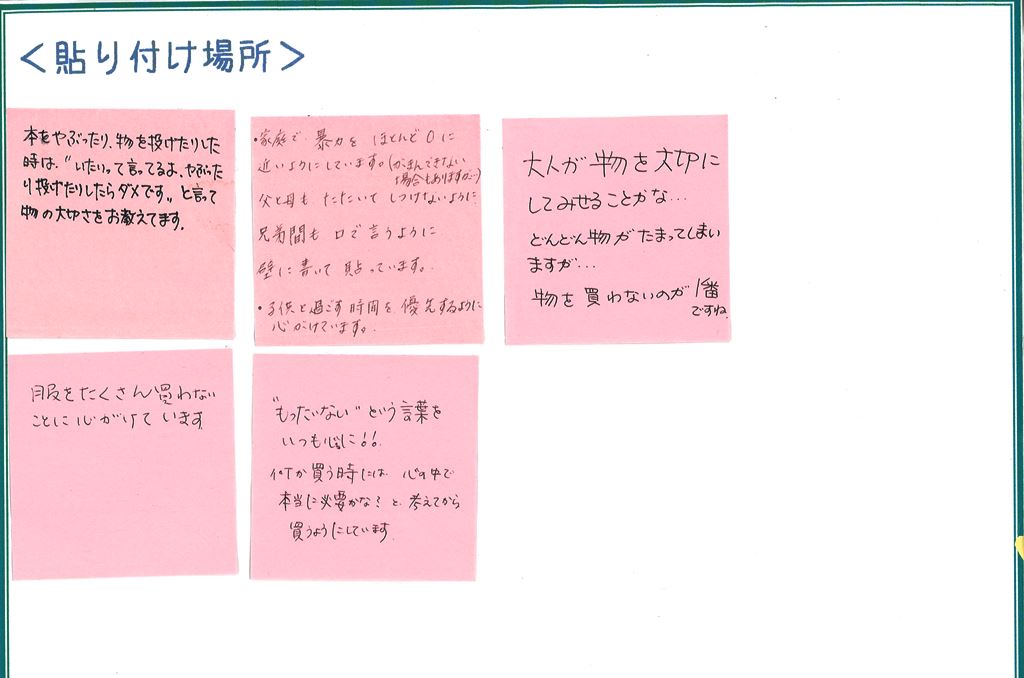 ＜貼り付け場所＞
本をやぶったり、物を投げたりした
時は、"いたいって言ってるよ、やぶった
り投げたりしたらダメです。"と言って
物の大切さをお教えてます。
・家庭で 暴力を ほとんど0に
近いようにしています。(がまんできない
場合もありますが…)
父と母も たたいて しつけないように
兄弟間も 口で言うように
壁に書いて 貼っています。
・子供と過ごす時間を優先するように
心がけています。
大人が物を大切に
してみせることかな…
どんどん物がたまってしまい
ますが…
物を買わないのが 1番
ですね。
服をたくさん買わない
ことに心がけて います
"もったいない"という言葉を
いつも心に!!
何か買う時には 心の中で
本当に必要かな? と 考えてから
買うようにしています